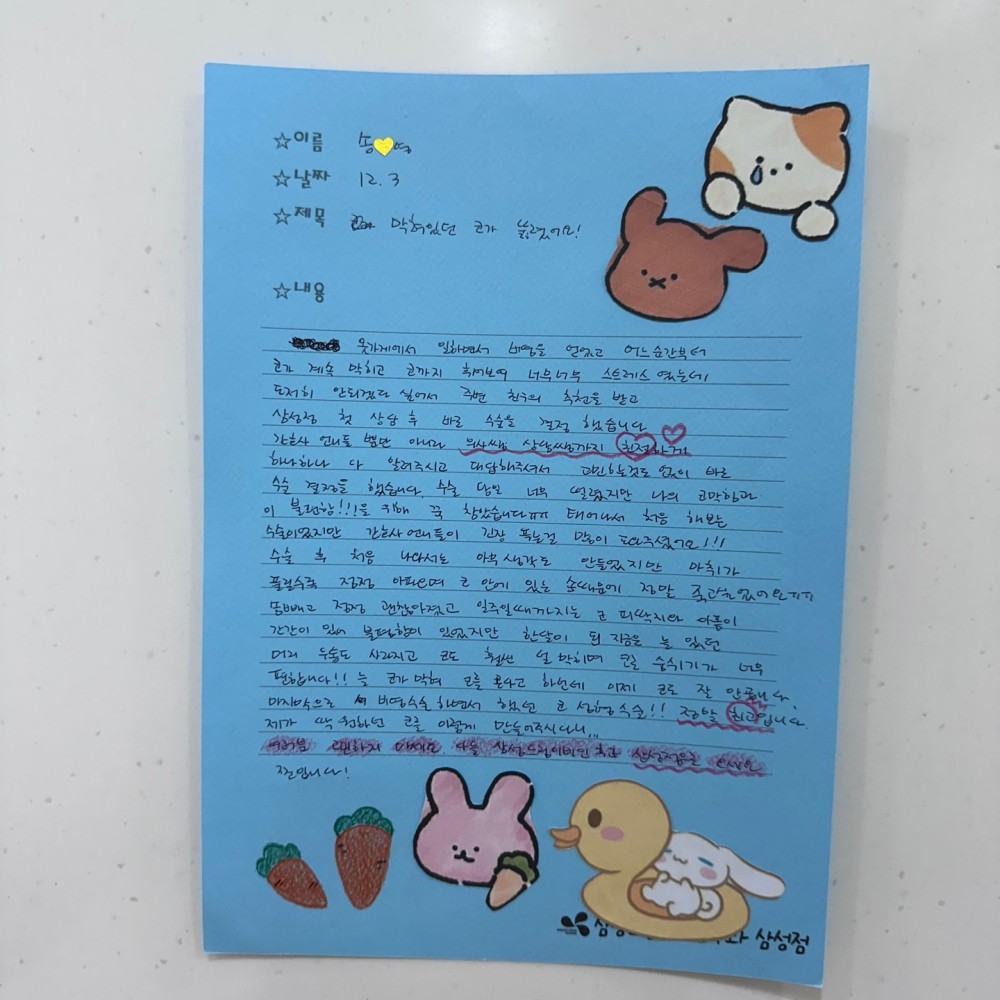 ☆이름 송💛영
☆날짜 12.3
☆제목 막혀있던 코가 뚫렸어요!
☆내용
옷가게에서 일하면서 비염을 얻었고 어느순간부터
코가 계속 막히고 코까지 휘어보여 너무너무 스트레스 였는데
도저히 안되겠다 싶어서 주변 친구의 추천을 받고
삼성점 첫 상담 후 바로 수술을 결정 했습니다
간호사 언니들 뿐만 아니라 의사쌤, 상담쌤까지 친절하게
하나하나 다 알려주시고 대답해주셔서 고민하는것도 없이 바로
수술 결정을 했습니다. 수술 당일 너무 떨렸지만 나의 코막힘과
이 불편함!!!을 위해 꾹 참았습니다ㅠㅠ 태어나서 처음 해보는
수술이었지만 간호사 언니들이 긴장 푸는걸 많이 도와주셨어요!!!
수술 후 처음 나와서는 아무생각도 안들었지만 마취가
풀릴수록 점점 아파오며 코 안에 있는 솜때문에 정말 죽과는없어요ㅠㅠ
솜빼고 점점 괜찮아졌고 일주일때까지는 코 피딱지와 아픔이
간간이 있어 불편함이 있었지만 한달이 된 지금은 늘 있던
머리 두통도 사라지고 코도 훨씬 덜 막히며 코로 숨쉬기가 너무
편합니다!! 늘 코가 막혀 코를 곤다고 하셨는데 이제 코도 잘 안곱니다.
마지막으로 비염수술 하면서 했던 코 성형수술!! 정말 최고입니다
제가 딱 원하던 코를 이렇게 만들어주시다니,,
여러분 고민하지 마세요 다들 삼성드림이비인후과 삼성점으로 오세요
짱입니다!
삼성 과 삼성점